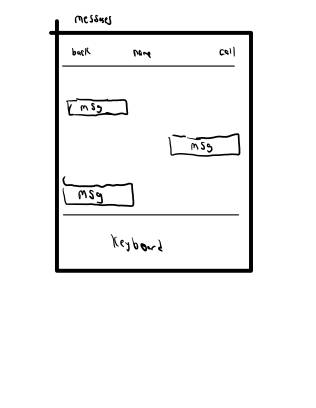 messages
back name call
msg
msg
msg
Keyboard